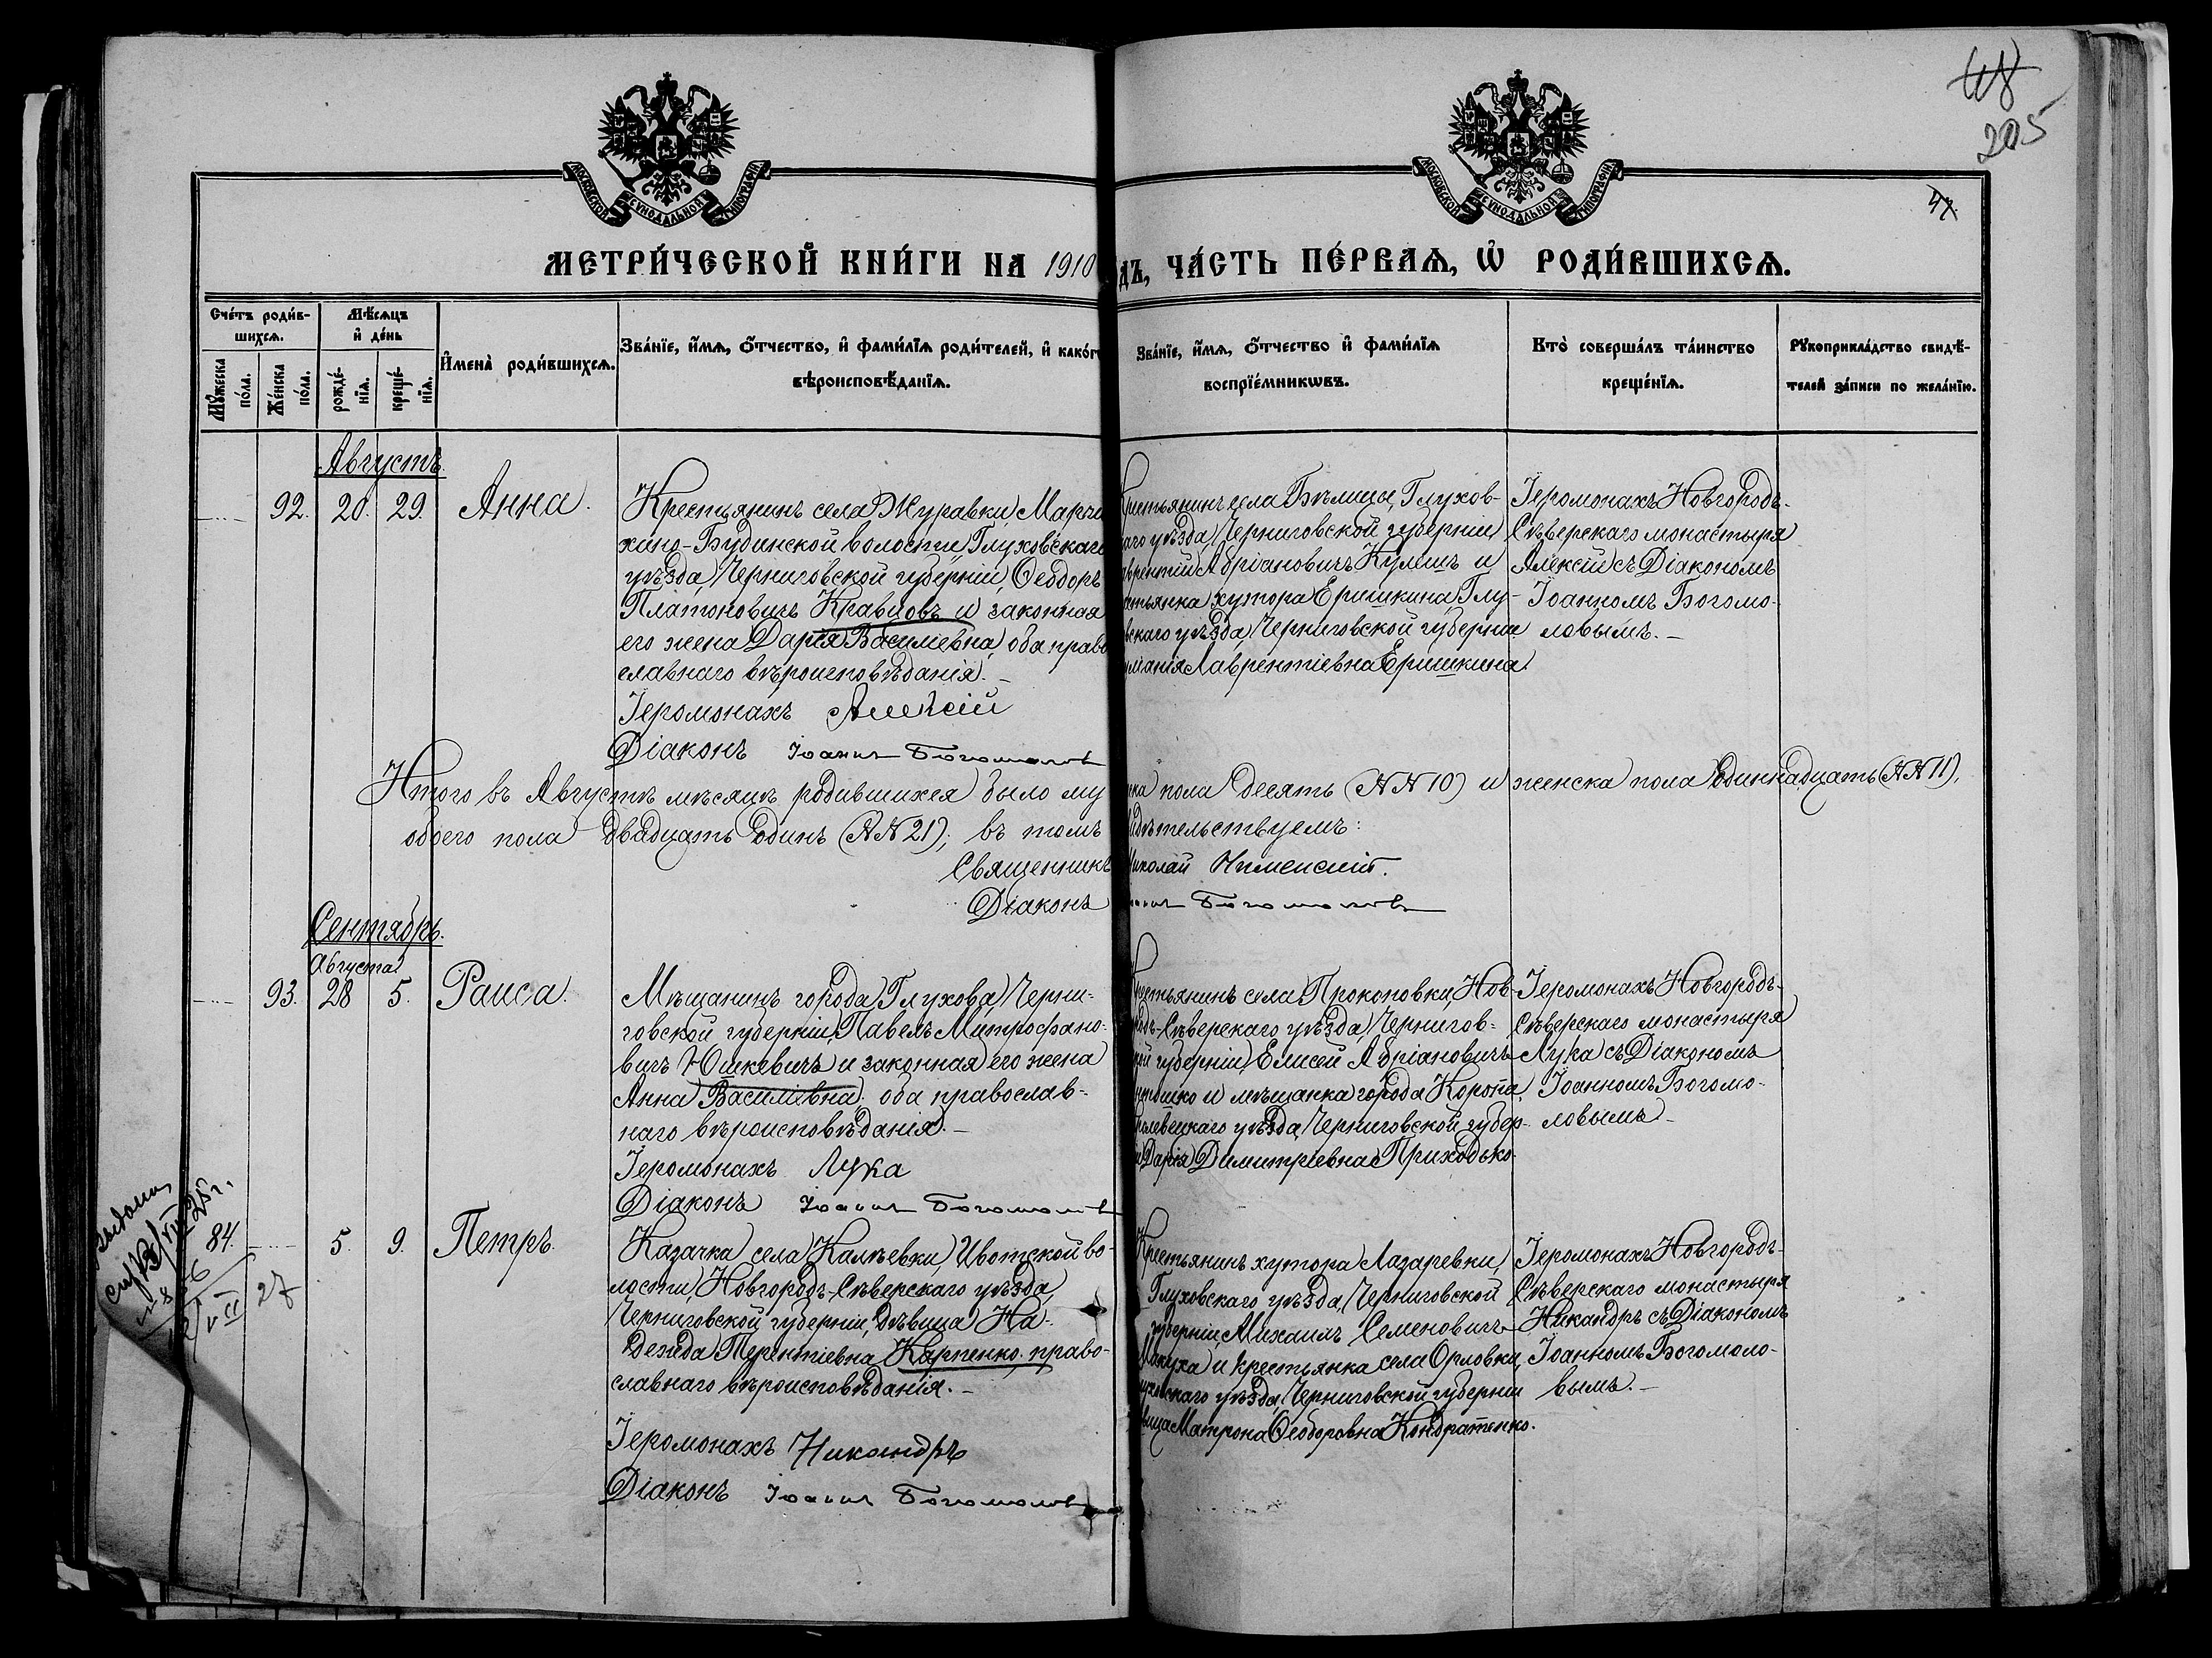 118
205
47
МОСКОВСКОЙ СѴНОДАЛЬНОЙ ТИПОГРАФІИ
МОСКОВСКОЙ СѴНОДАЛЬНОЙ ТИПОГРАФІИ
МЕТРИ́ЧЕСКОЙ КНИ́ГИ НА 1910
ДЪ, ЧА́СТЬ ПЕ́РВАѦ, Ѿ РОДИ́ВШИХСѦ.
Сче́тъ роди́в-
шихсѧ.
Мꙋжеска
по́ла.
Же́нска
по́ла.
Мѣ́сѧцъ
и҆ де́нь
рожде́-
нїѧ.
креще́-
нїѧ.
И҆мена̀ роди́вшихсѧ.
Зва́нїе, и҆́мѧ, ѻ҆́тчество, и҆ фами́лїѧ роди́телей, и҆ како́г
вѣроисповѣ́данїѧ.
Зва́нїе, и҆́мѧ, ѻ҆́тчество и҆ фами́лїѧ
воспрїе́мникѡвъ.
Кто̀ соверша́лъ та́инство
креще́нїѧ.
Рꙋкоприкла́дство свидѣ́-
телей за́писи по жела́нїю.
Августъ.
92. 20. 29. Анна.
Крестьянинъ села Журавки, Марчи
хино-Будинской волости, Глуховскаго
уѣзда, Черниговской губерніи, Ѳеодоръ
Платоновичъ Кравцовъ и законная
его жена Дарія Василіевна, оба право
славнаго вѣроисповѣданія. –
Іеромонахъ Алексій
Діаконъ Іоаннъ Богомолов
рестьянинъ села Бѣлицы, Глухов-
аго уѣзда, Черниговской губерніи,
врентій Адріановичъ Кулешъ и
стьянка хутора Еришкина, Глу-
вскаго уѣзда, Черниговской губерніи
Лаврентіевна Еришкина.
Іеромонахъ Новгородъ-
Сѣверскаго монастыря
Алексій съ Діакономъ
Іоанномъ Богомо-
ловымъ. –
Итого въ Августѣ мѣсяцѣ родившихся было му
ска пола десять (№№ 10) и женска пола одиннадцать (№№ 11),
обоего пола двадцать одинъ (№№ 21); въ томъ
идѣтельствуемъ:
Священникъ
Николай
Діаконъ
Богомолов
Сентябрь.
Августа
93. 28 5. Раиса.
Мѣщанинъ города Глухова, Черни-
говской губерніи, Павелъ Митрофано-
вичъ Юшкевичъ и законная его жена
Анна Василіевна, оба православ-
наго вѣроисповѣданія. –
Іеромонахъ Лука
Діаконъ Іоаннъ Богомолов
рестьянинъ села Прокоповки, Нов-
родъ-Сѣверскаго уѣзда, Чернигов-
ой губерніи, Елисей Адріановичъ
и мѣщанка города Коропа,
ролевецкаго уѣзда, Черниговской губер-
Дарія Димитріевна Приходько.
Іеромонахъ Новгородъ-
Сѣверскаго монастыря
Лука съ Діакономъ
Іоанномъ Богомо-
ловымъ –
84. 5. 9. Петръ.
27
Казачка села Калѣевки, Ивотской во-
лости, Новгородъ-Сѣверскаго уѣзда,
Черниговской губерніи, дѣвица На-
дежда Терентіевна Карпенко, право-
славнаго вѣроисповѣданія. –
Іеромонахъ Никандръ
Діаконъ Іоаннъ Богомолов
Крестьянинъ хутора Лазаревки,
Глуховскаго уѣзда, Черниговской
губерніи, Михаилъ Семеновичъ
Макуха и крестьянка села Орловки,
уховскаго уѣзда, Черниговской губерніи
вица Матрона Ѳеодоровна Кондратенко.
Іеромонахъ Новгородъ-
Сѣверскаго монастыря
Никандръ съ Діакономъ
Іоанномъ Богомоло-
вымъ. –